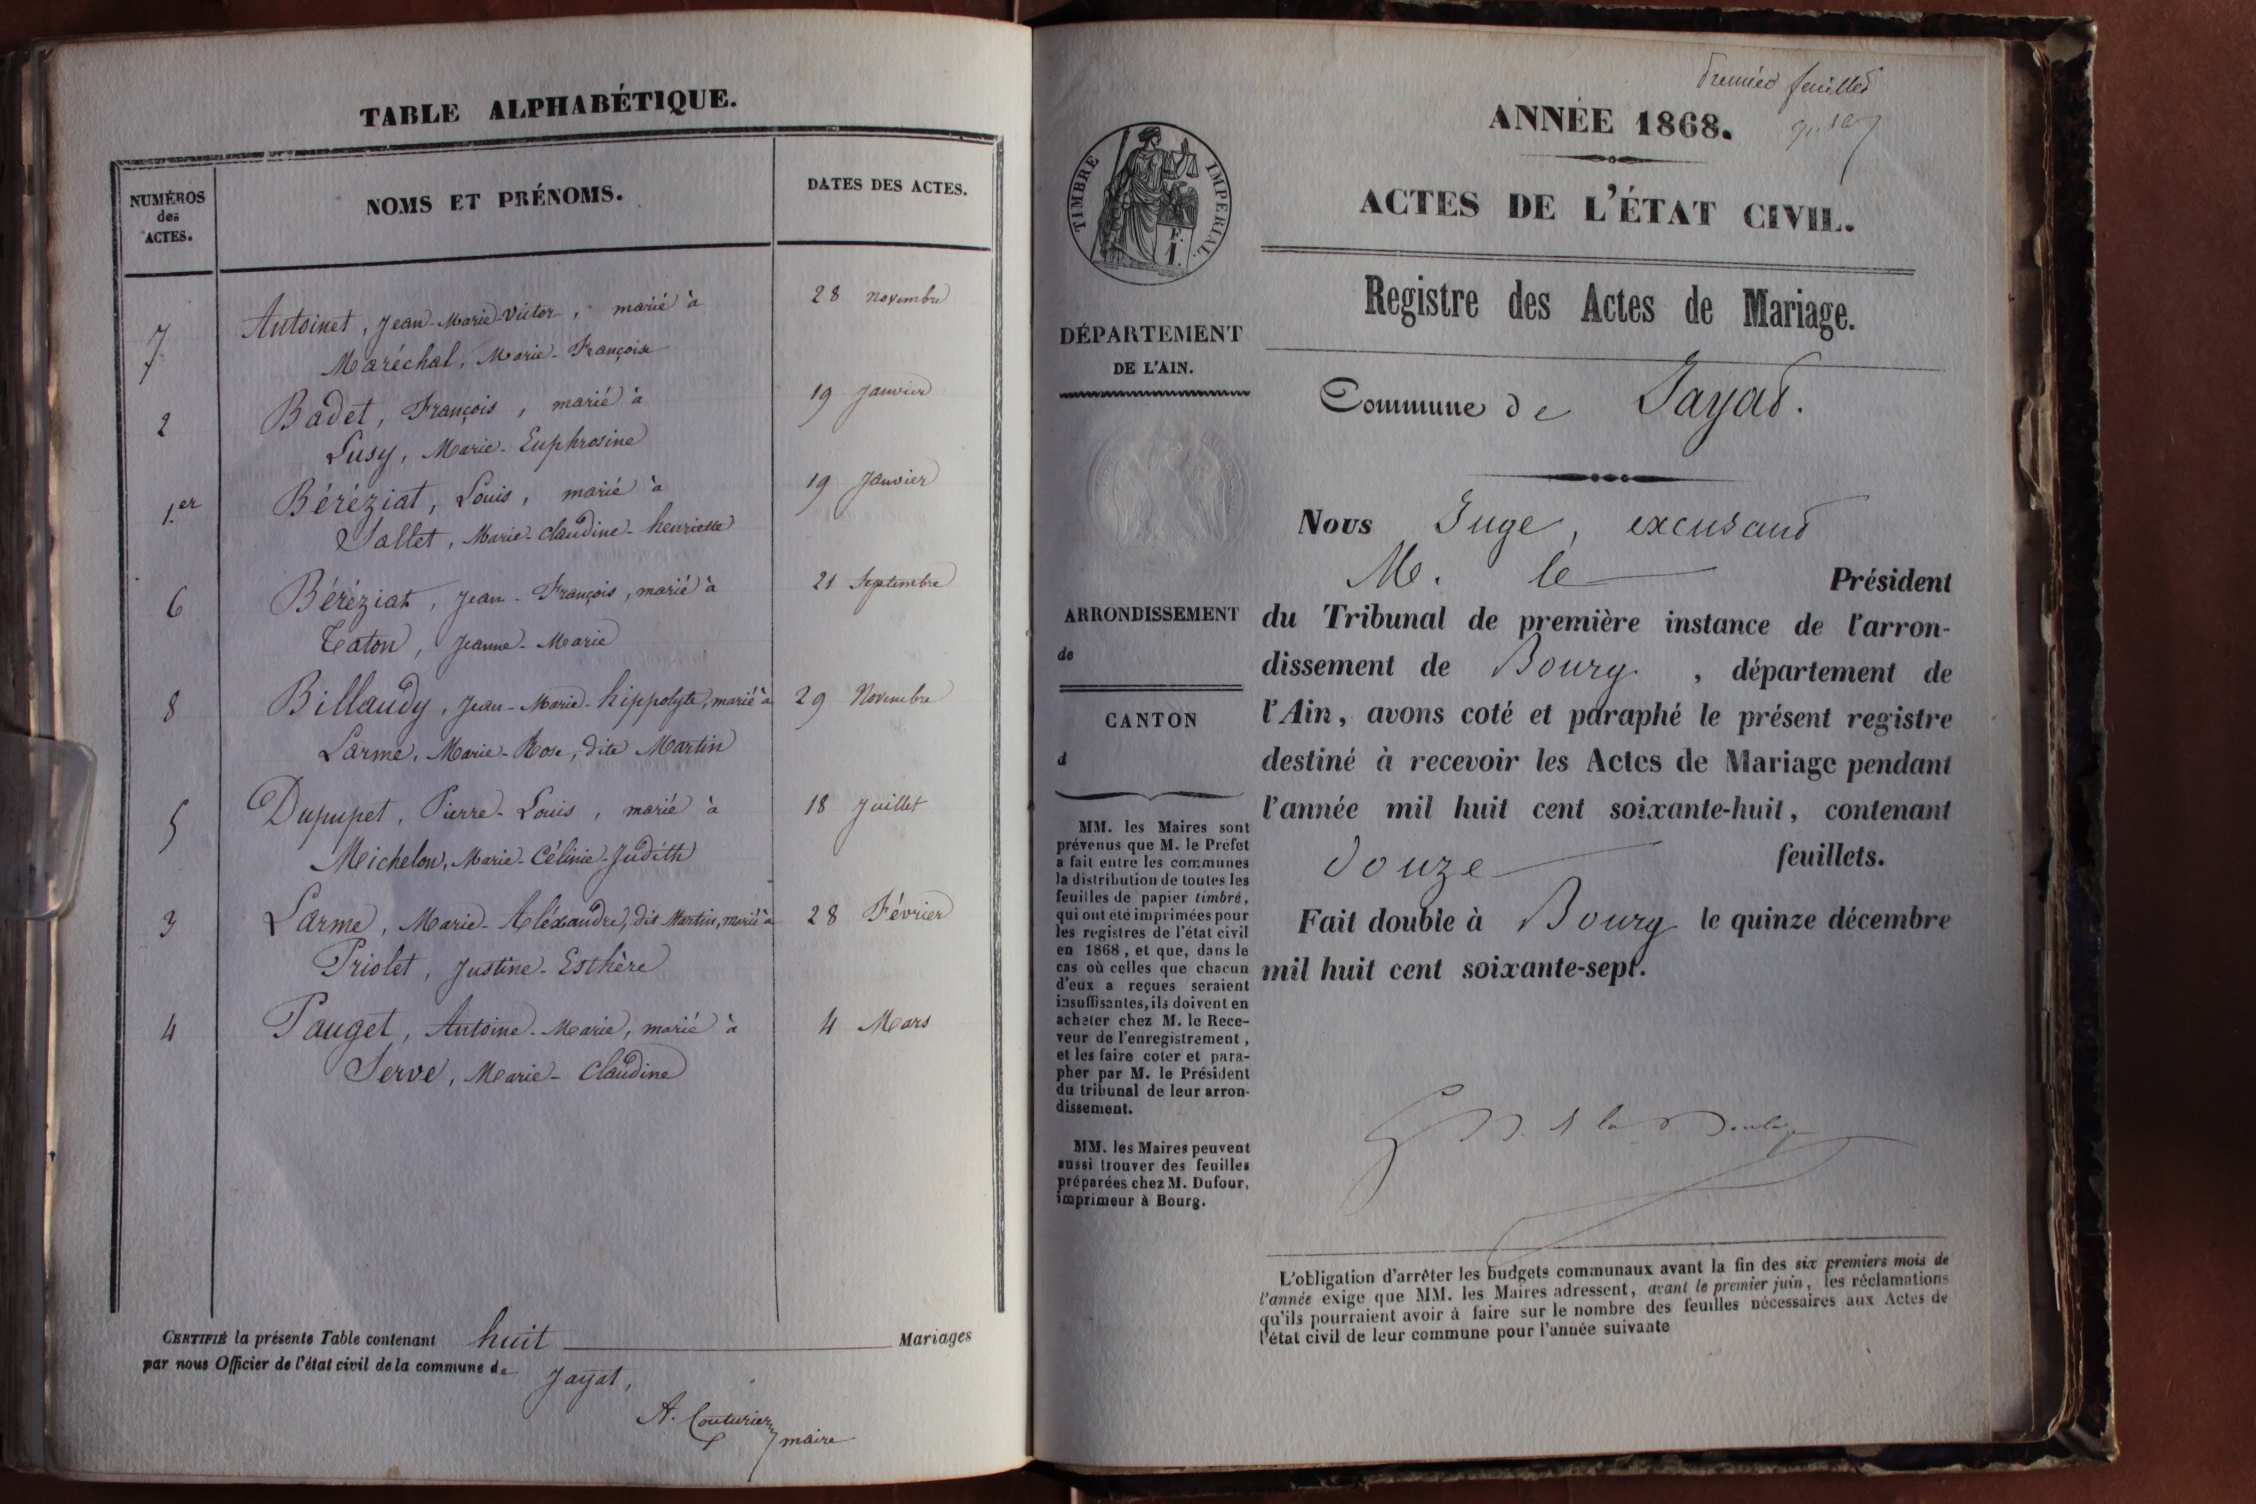 TABLE ALPHABÉTIQUE.
NUMÉROS
des
ACTES.
NOMS ET PRÉNOMS.
DATES DES ACTES.
7 Antoinet, Jean-Marie-Victor, marié à 28 Novembre
Maréchal, Marie-Françoise
2 Badet, François, marié à 19 Janvier
Lusy, Marie-Euphrosine
1.er Béréziat, Louis, marié à 19 Janvier
Sallet, Marie-Claudine-henriette
6 Béréziat, Jean-François, marié à 21 Septembre
Caton, Jeanne-Marie
8 Billaudy, Jean-Marie-hippolyte, marié à 29 Novembre
Larme, Marie-Rose, dite Martin
5 Dupupet, Pierre-Louis, marié à 18 Juillet
Michelon, Marie-Célinie-Judith
3 Larme, Marie-Aléxandre, dit Martin, marié à 28 Février
Priolet, Justine-Esthère
4 Pauget, Antoine-Marie, marié à 4 Mars
Serve, Marie-Claudine
CERTIFIÉ la présente Table contenant huit Mariages
par nous Officier de l'état civil de la commune de Jayat,
A. Couturier
maire
Premier feuillet
ANNÉE 1868.
ACTES DE L'ÉTAT CIVIL.
TIMBRE IMPERIAL.
F.
1.
Registre des Actes de Mariage.
DÉPARTEMENT
DE L'AIN.
Commune de Jayat.
Nous Juge, excusant
M. le Président
du Tribunal de première instance de l'arron-
dissement de Bourg, département de
l'Ain, avons coté et paraphé le présent registre
destiné à recevoir les Actes de Mariage pendant
l'année mil huit cent soixante-huit, contenant
douze feuillets.
Fait double à Bourg le quinze décembre
mil huit cent soixante-sept.
ARRONDISSEMENT
de
CANTON
d
MM. les Maires sont
prévenus que M. le Préfet
a fait entre les communes
la distribution de toutes les
feuilles de papier timbré,
qui ont été imprimées pour
les registres de l'état civil
en 1868, et que, dans le
cas où celles que chacun
d'eux a reçues seraient
insuffisantes, ils doivent en
acheter chez M. le Rece-
veur de l'enregistrement,
et les faire coter et para-
pher par M. le Président
du tribunal de leur arron-
dissement.
MM. les Maires peuvent
aussi trouver des feuilles
préparées chez M. Dufour,
imprimeur à Bourg.
L'obligation d'arrêter les budgets communaux avant la fin des six premiers mois de
l'année exige que MM. les Maires adressent, avant le premier juin, les réclamations
qu'ils pourraient avoir à faire sur le nombre des feuilles nécessaires aux Actes de
l'état civil de leur commune pour l'année suivante